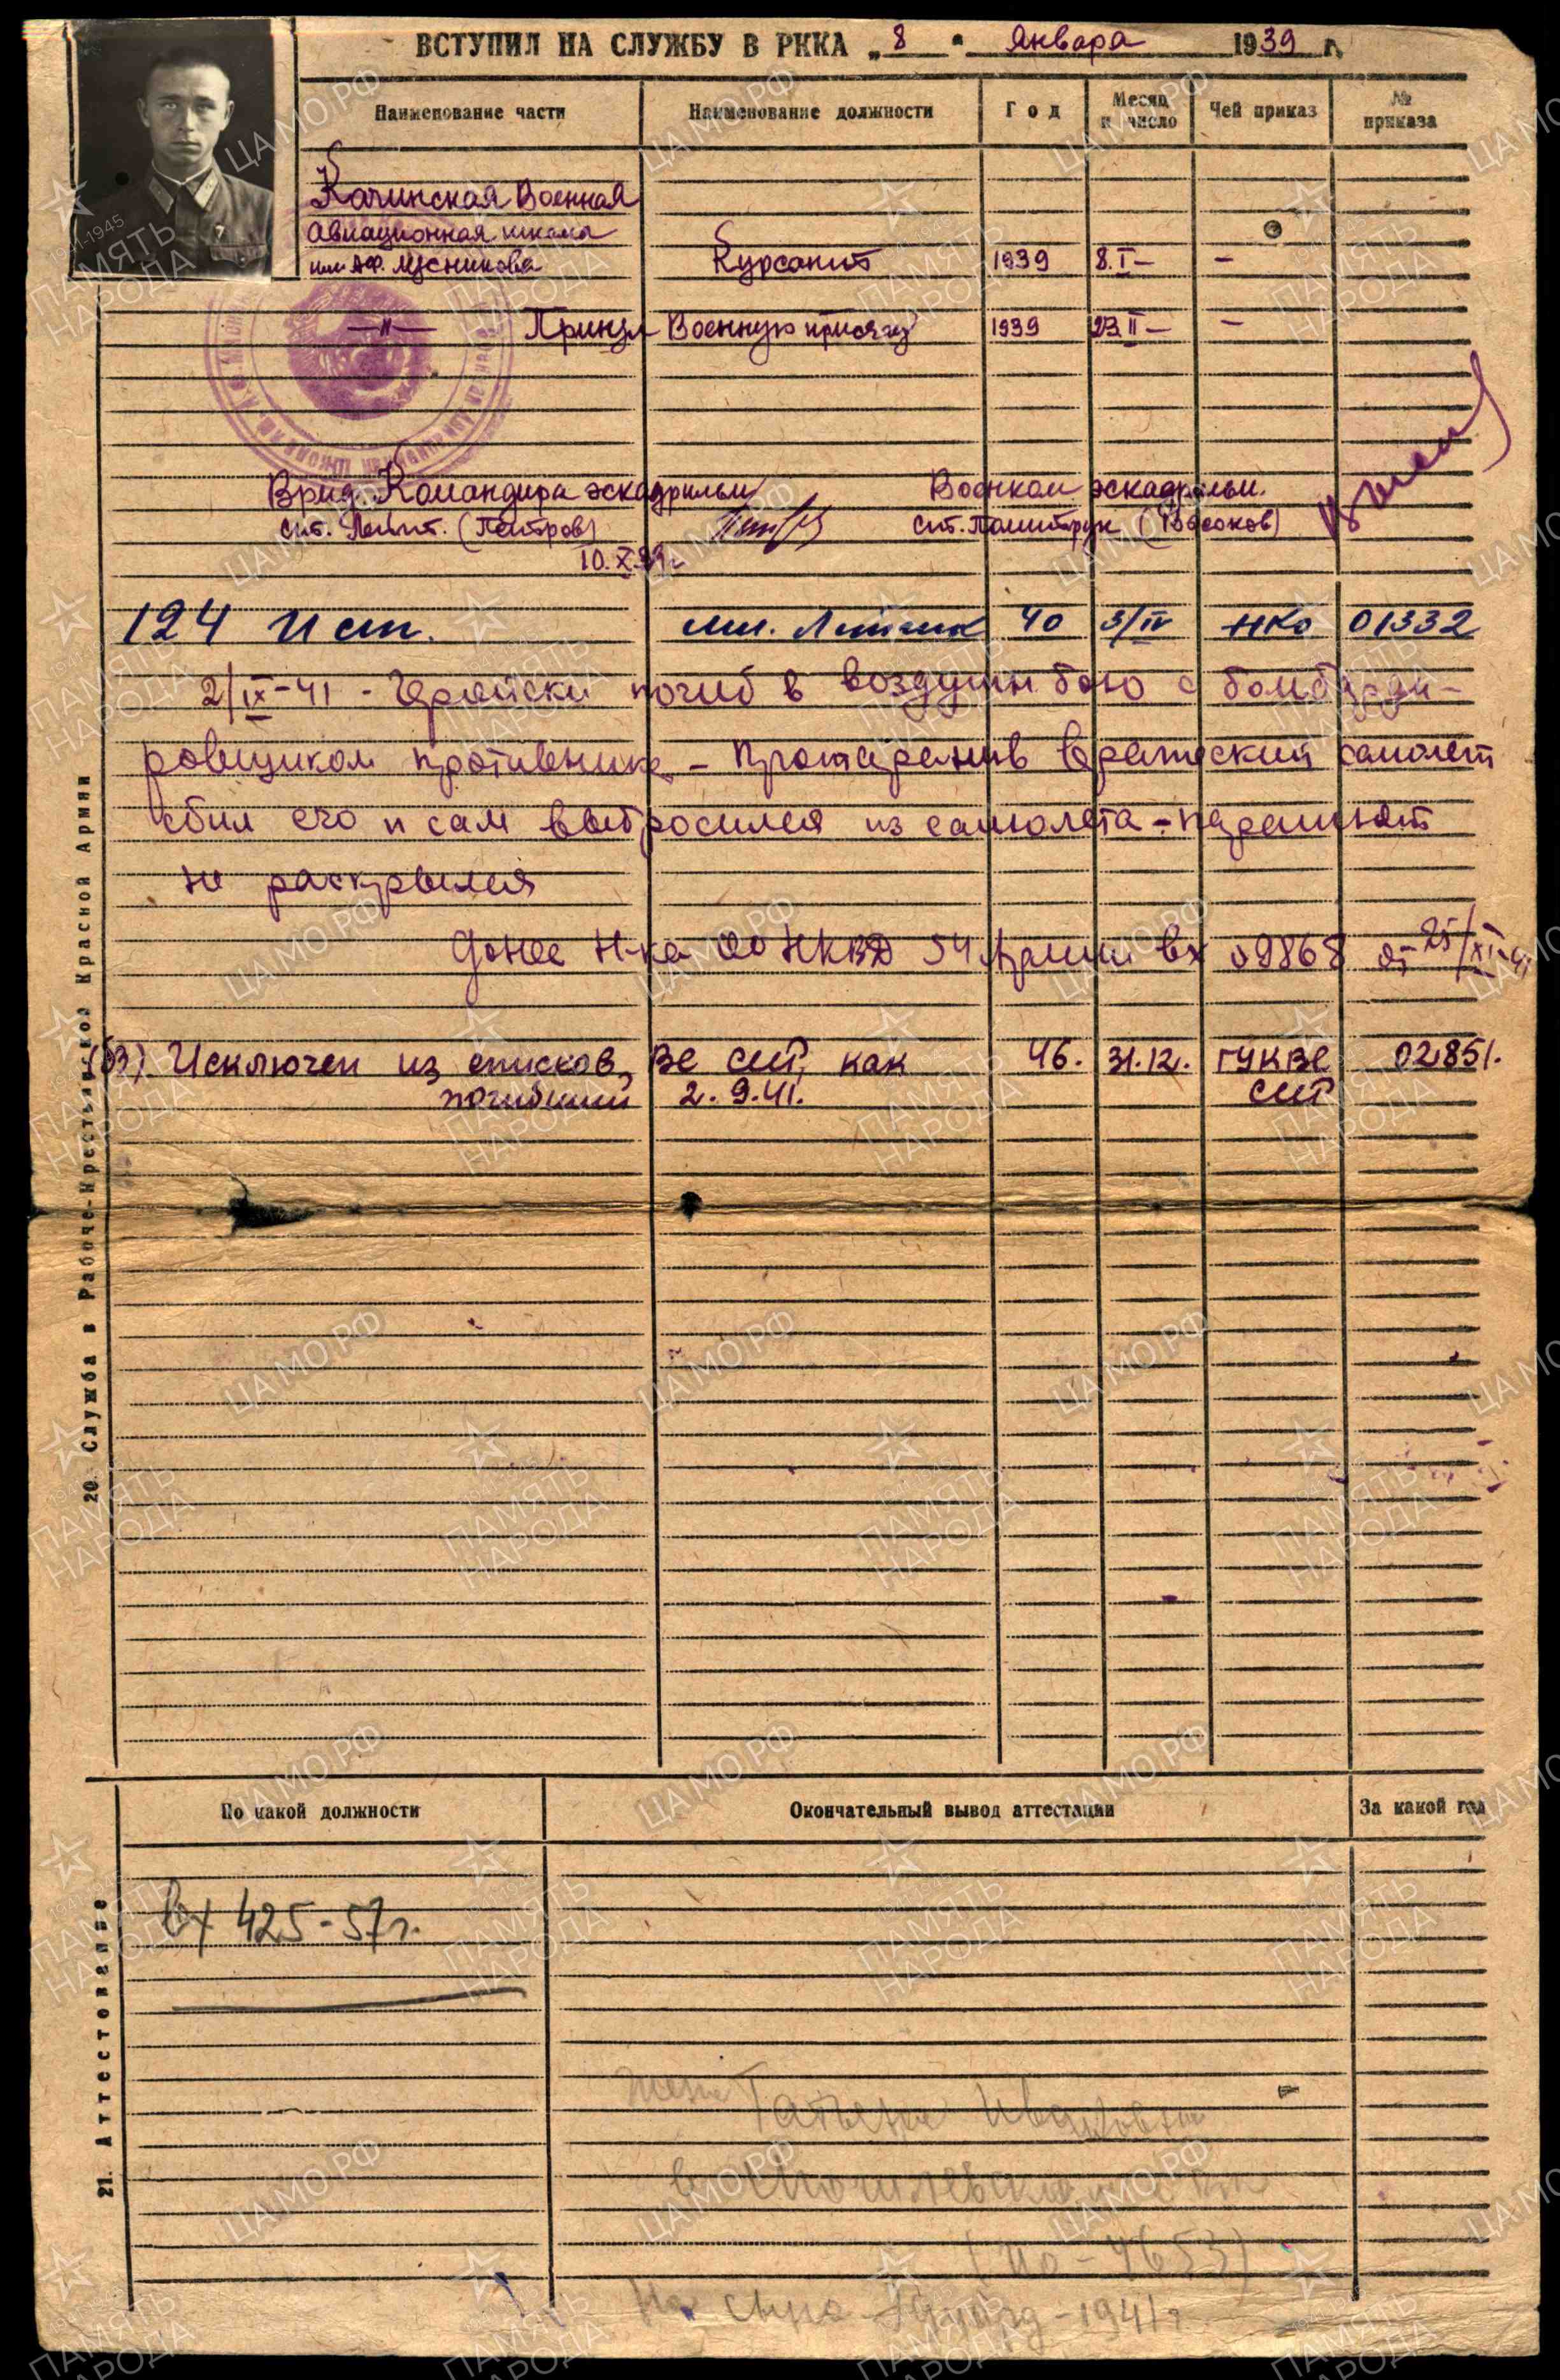 ВСТУПИЛ НА СЛУЖБУ В РККА „8" января 1939 г.
Наименование части Наименование должности Год Месяц и число Чей приказ № приказа
Качинская Военная
Авиационная школа
им. Аф. Мясникова Курсант 1939 8.I– –
–"– Принял Военную присягу 1939 23.II– –
Врид. Командира эскадрильи Военком эскадрильи.
Ст. Лейт. (Петров) Ст. Политрук
10.X.39г.
124 Исп. мл. Лейтенант 40 3/IV НКО 01332
2/IX-41 - Геройски погиб в воздушн бою с бомбарди-
ровщиком противника - Протаранив вражеский самолет
сбил его и сам выбросился из самолета - парашют
не раскрылся
Донес Н-ка ОО НКВД 54 Армии вх 09868 от 25/XI-41
(б3). Исключен из списков ВС СССР, как 46. 31.12. ГУК ВС 02851.
погибший 2.9.41.
20. Служба в Рабоче-Крестьянской Красной Армии
По какой должности Окончательный вывод аттестации За какой год
вх 425-57г.
21. Аттестование
жена Татьяна Ивановна
(ПО-4653)
1941г
ЦАМО.РФ
ПАМЯТЬ НАРОДА
1941-1945